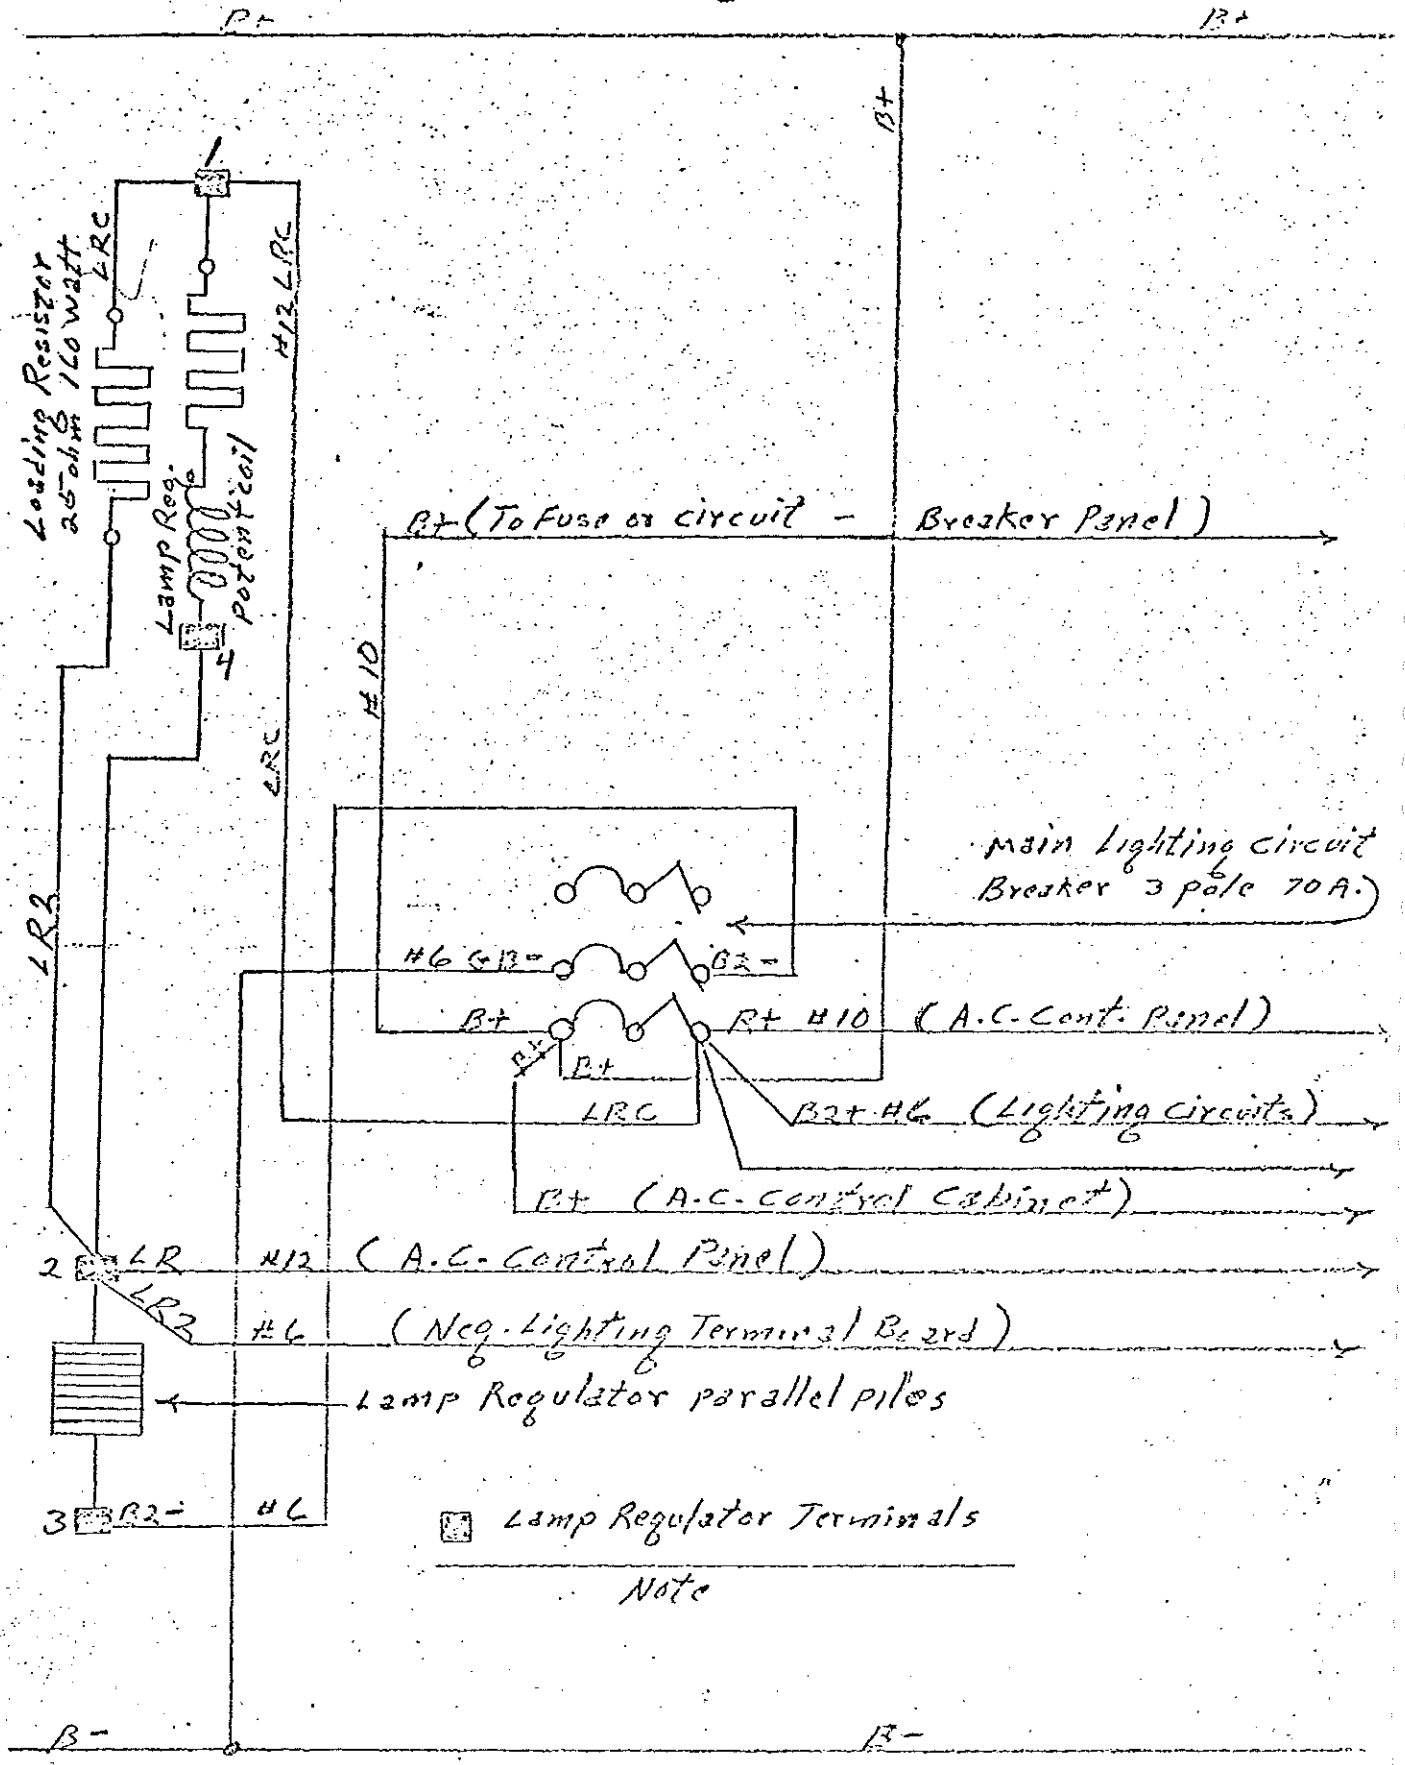 B+
B+
B+
1
LRC
Loading Resistor
25 ohm 160 watt
#12 LRC
Lamp Reg.
Potent coil
B+ (To Fuse or circuit - Breaker Panel)
4
#10
LRC
Main Lighting circuit
Breaker 3 pole 70A.
LR2
#6 GB-
B2-
B+
B+ #10 (A.C. Cont. Panel)
B+
B+
LRC
B2+ #6 (Lighting Circuits)
B+ (A.C. Control Cabinet)
2
LR #12 (A.C. Control Panel)
LR2 #6 (Neg. Lighting Terminal Board)
Lamp Regulator parallel piles
3
B2- #6
Lamp Regulator Terminals
Note
B-
B-